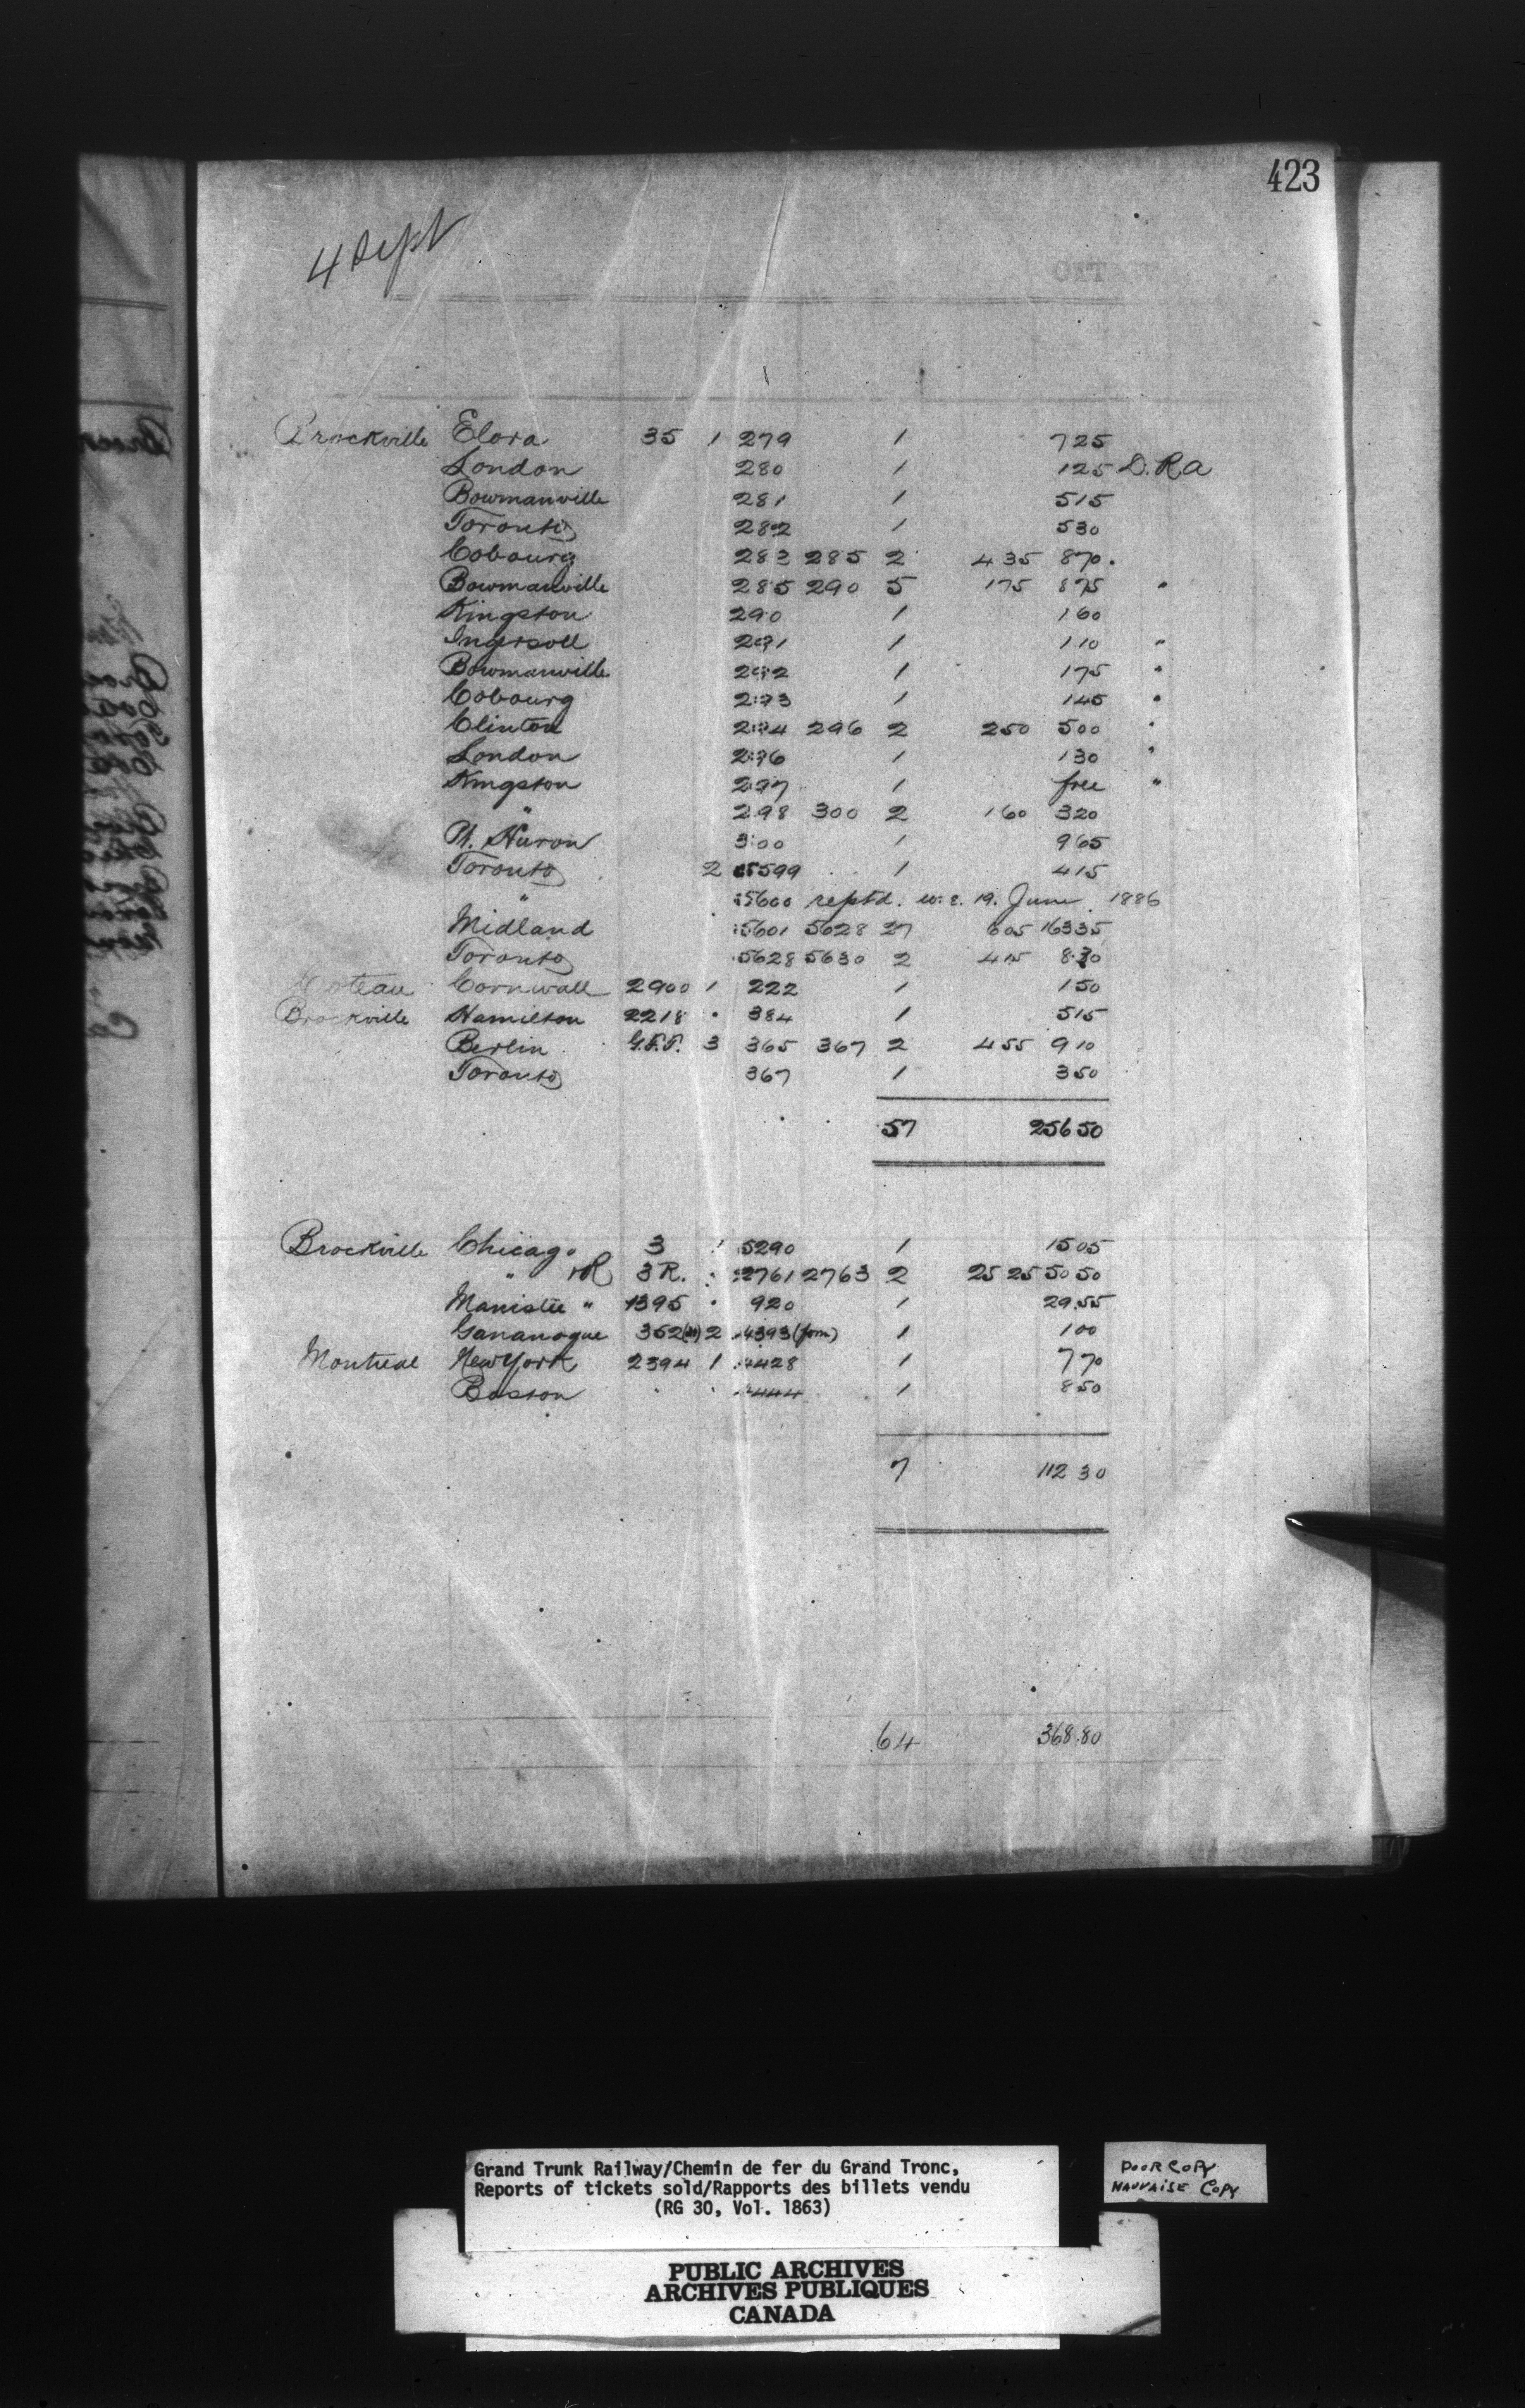 423
4 Sept
Brockville Elora 35 1 279 1 725
London 280 1 125 D.R.A
Bowmanville 281 1 515
Toronto 282 1 530
Cobourg 283 285 2 435 870.
Bowmanville 285 290 5 175 875 "
Kingston 290 1 160
Ingersoll 291 1 110 "
Bowmanville 292 1 175 "
Cobourg 293 1 145 "
Clinton 294 296 2 250 500 "
London 296 1 130 "
Kingston 297 1 free "
" 298 300 2 160 320
Pt. Huron 300 1 965
Toronto 2 5599 1 415
" 5600 reptd. w.e. 19. June 1886
Midland 5601 5628 27 605 16335
Toronto 5628 5630 2 415 830
Coteau Cornwall 2900 1 222 1 150
Brockville Hamilton 2218 " 384 1 515
Berlin G.T.T. 3 365 367 2 455 910
Toronto 367 1 350
57 25650
Brockville Chicago 3 1 5290 1 1505
" R 3R. : 2761 2763 2 25 25 50 50
Manistee " 1395 " 920 1 29.55
Gananoque 352 2 4393 (form) 1 100
Montreal New York 2394 1 4428 1 770
Boston " " 444 1 850
7 112 30
64 368.80
Grand Trunk Railway/Chemin de fer du Grand Tronc,
Reports of tickets sold/Rapports des billets vendu
(RG 30, Vol. 1863)
POOR COPY
MAUVAISE COPY
PUBLIC ARCHIVES
ARCHIVES PUBLIQUES
CANADA